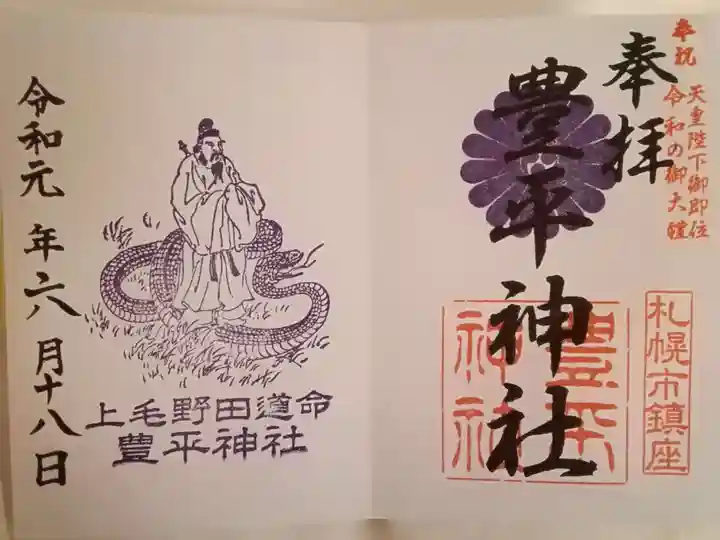 奉祝 天皇陛下御即位
令和の御大禮
奉拝
豊平神社
豊平神社
札幌市鎮座
上毛野田道命
豊平神社
令和元年六月十八日